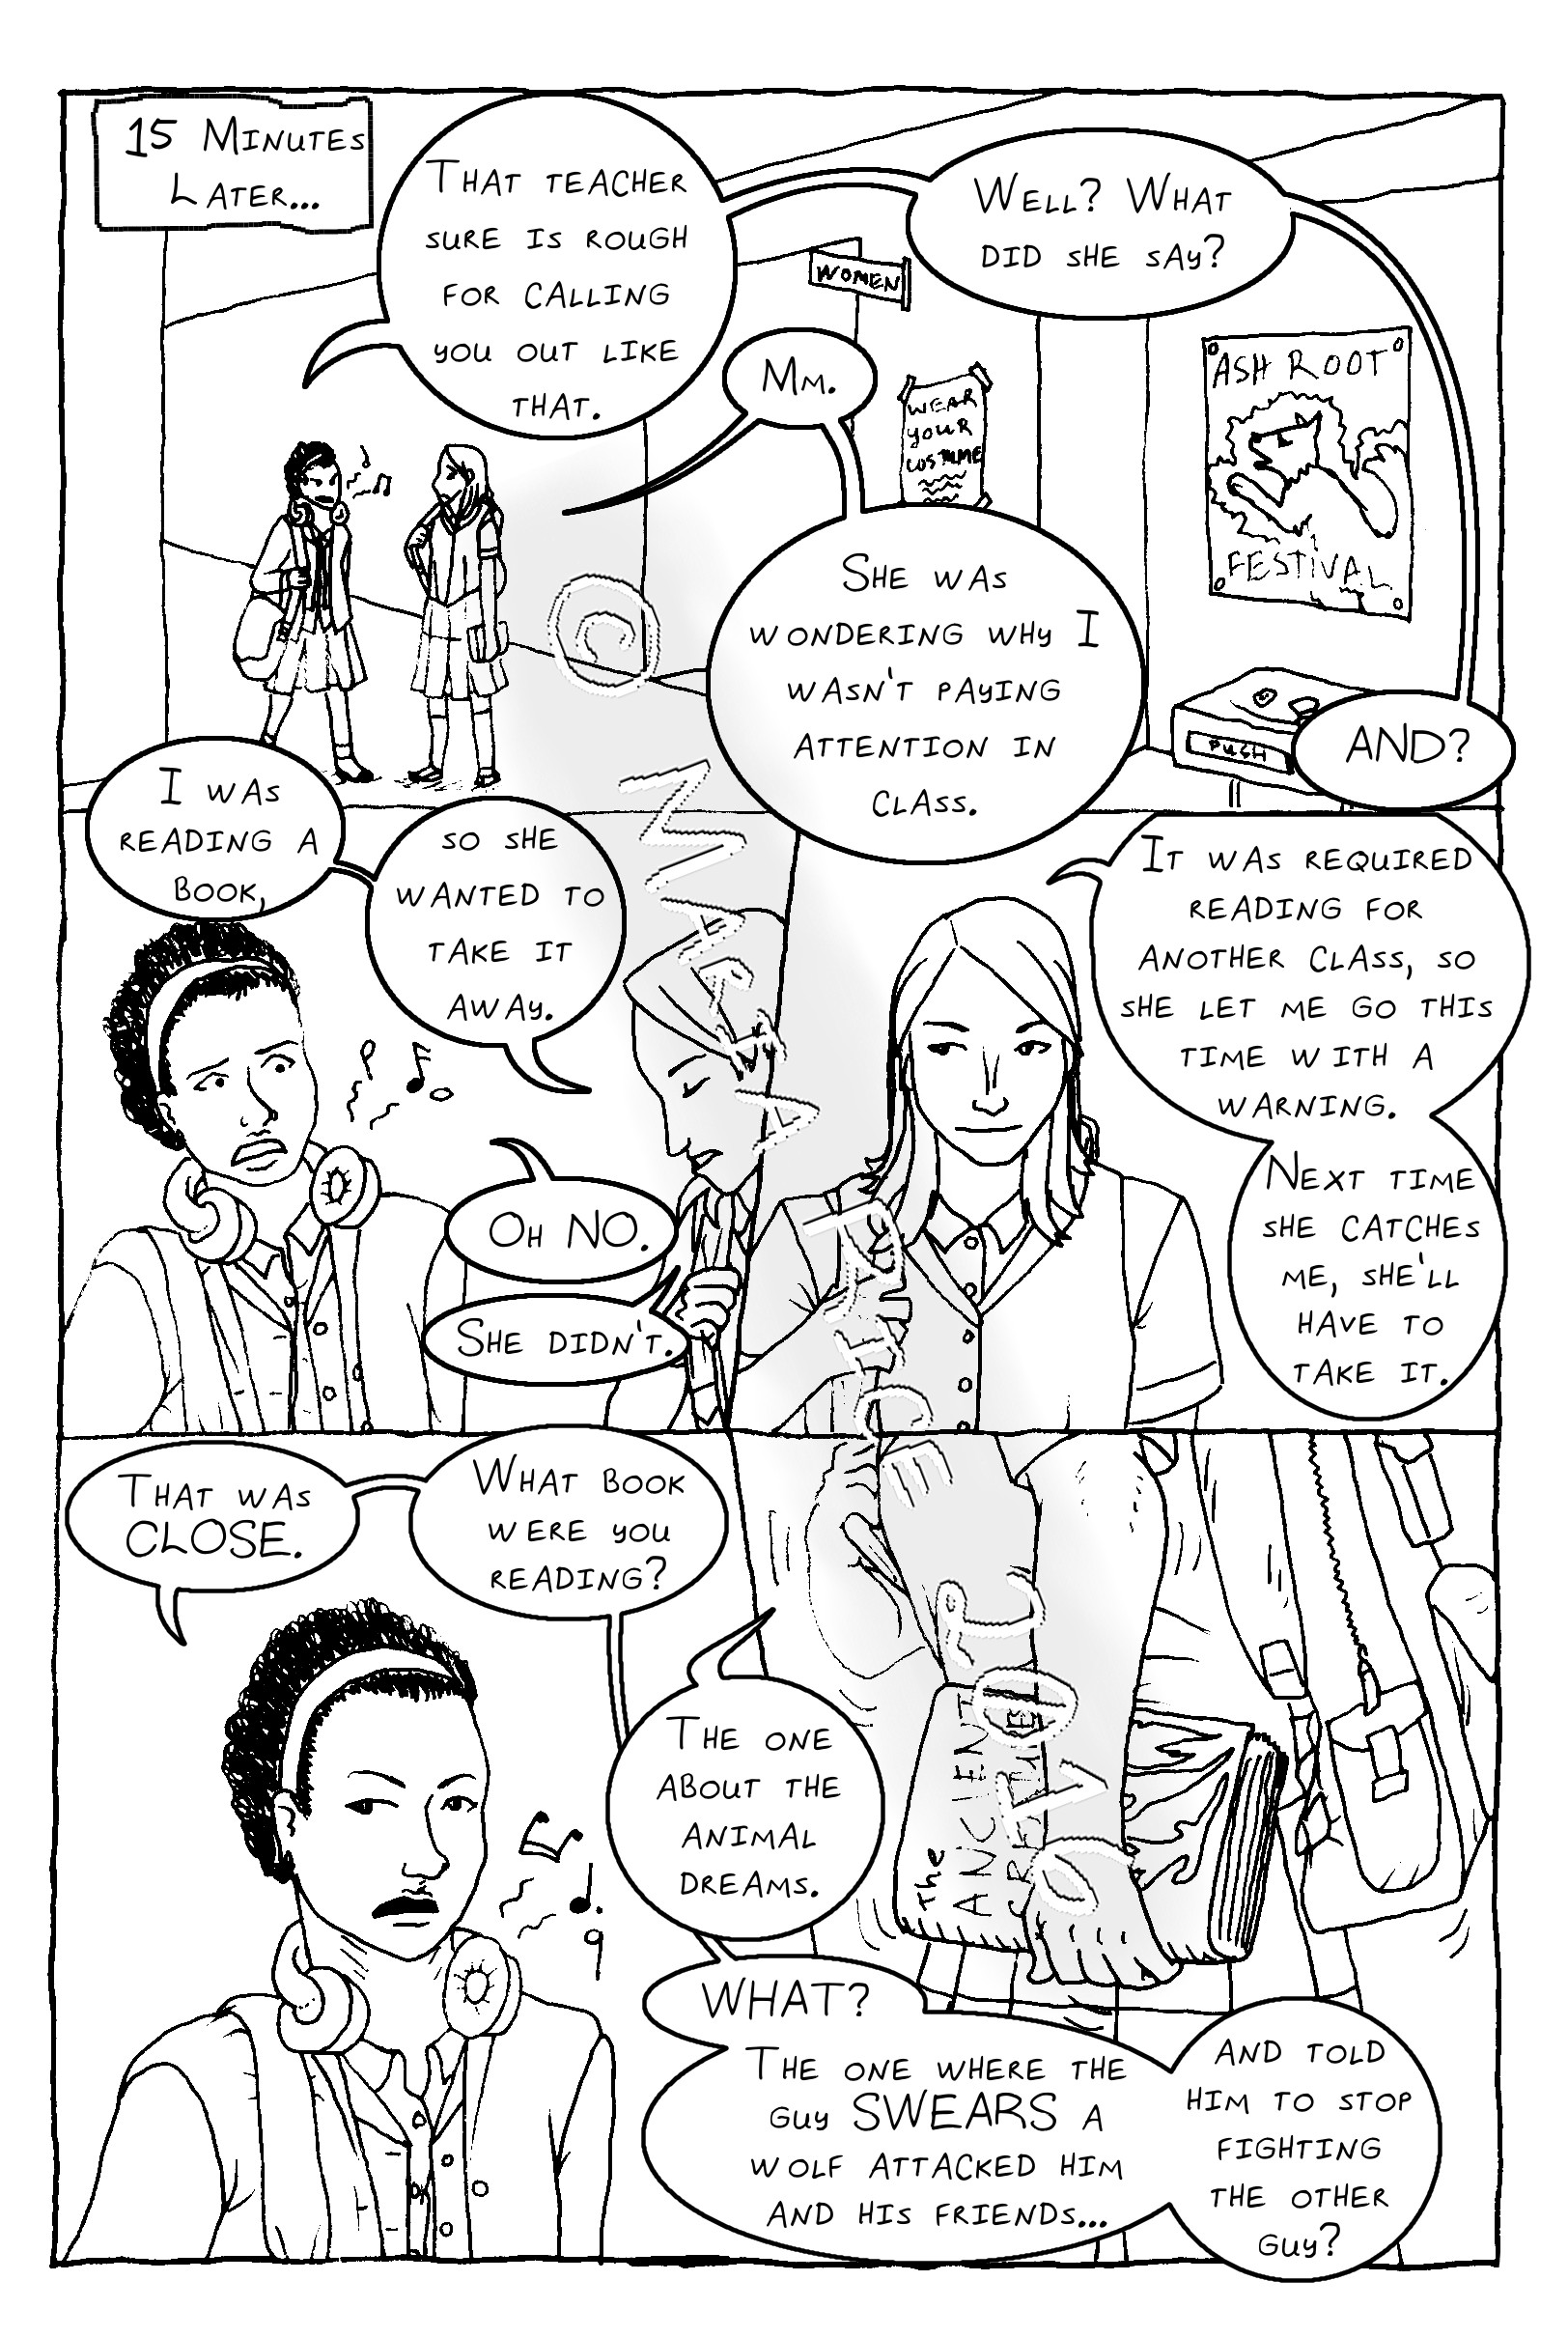 15 Minutes
Later...
That teacher
sure is rough
for calling
you out like
that.
Well? What
did she say?
WOMEN
Mm.
WEAR
YOUR
COSTUME
ASH ROOT
FESTIVAL
She was
wondering why I
wasn't paying
attention in
class.
PUSH
AND?
I was
reading a
book,
so she
wanted to
take it
away.
Oh NO.
She didn't.
It was required
reading for
another class, so
she let me go this
time with a
warning.
Next time
she catches
me, she'll
have to
take it.
That was
CLOSE.
What book
were you
reading?
The one
about the
animal
dreams.
the
ANCIENT
WHAT?
The one where the
guy SWEARS a
wolf attacked him
and his friends...
and told
him to stop
fighting
the other
guy?
©